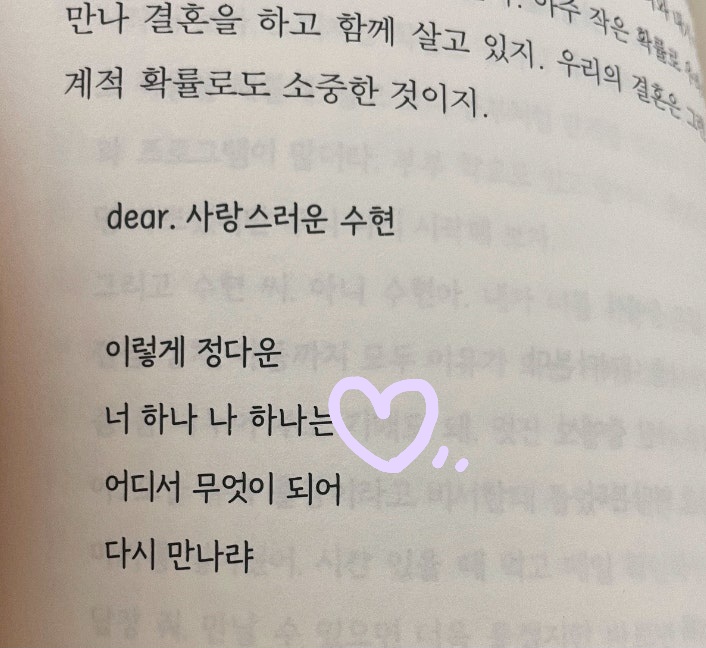 아주 작은 확률로
만나 결혼을 하고 함께 살고 있지. 우리의 결혼은
계적 확률로도 소중한 것이지.
dear. 사랑스러운 수현
이렇게 정다운
너 하나 나 하나는
어디서 무엇이 되어
다시 만나랴